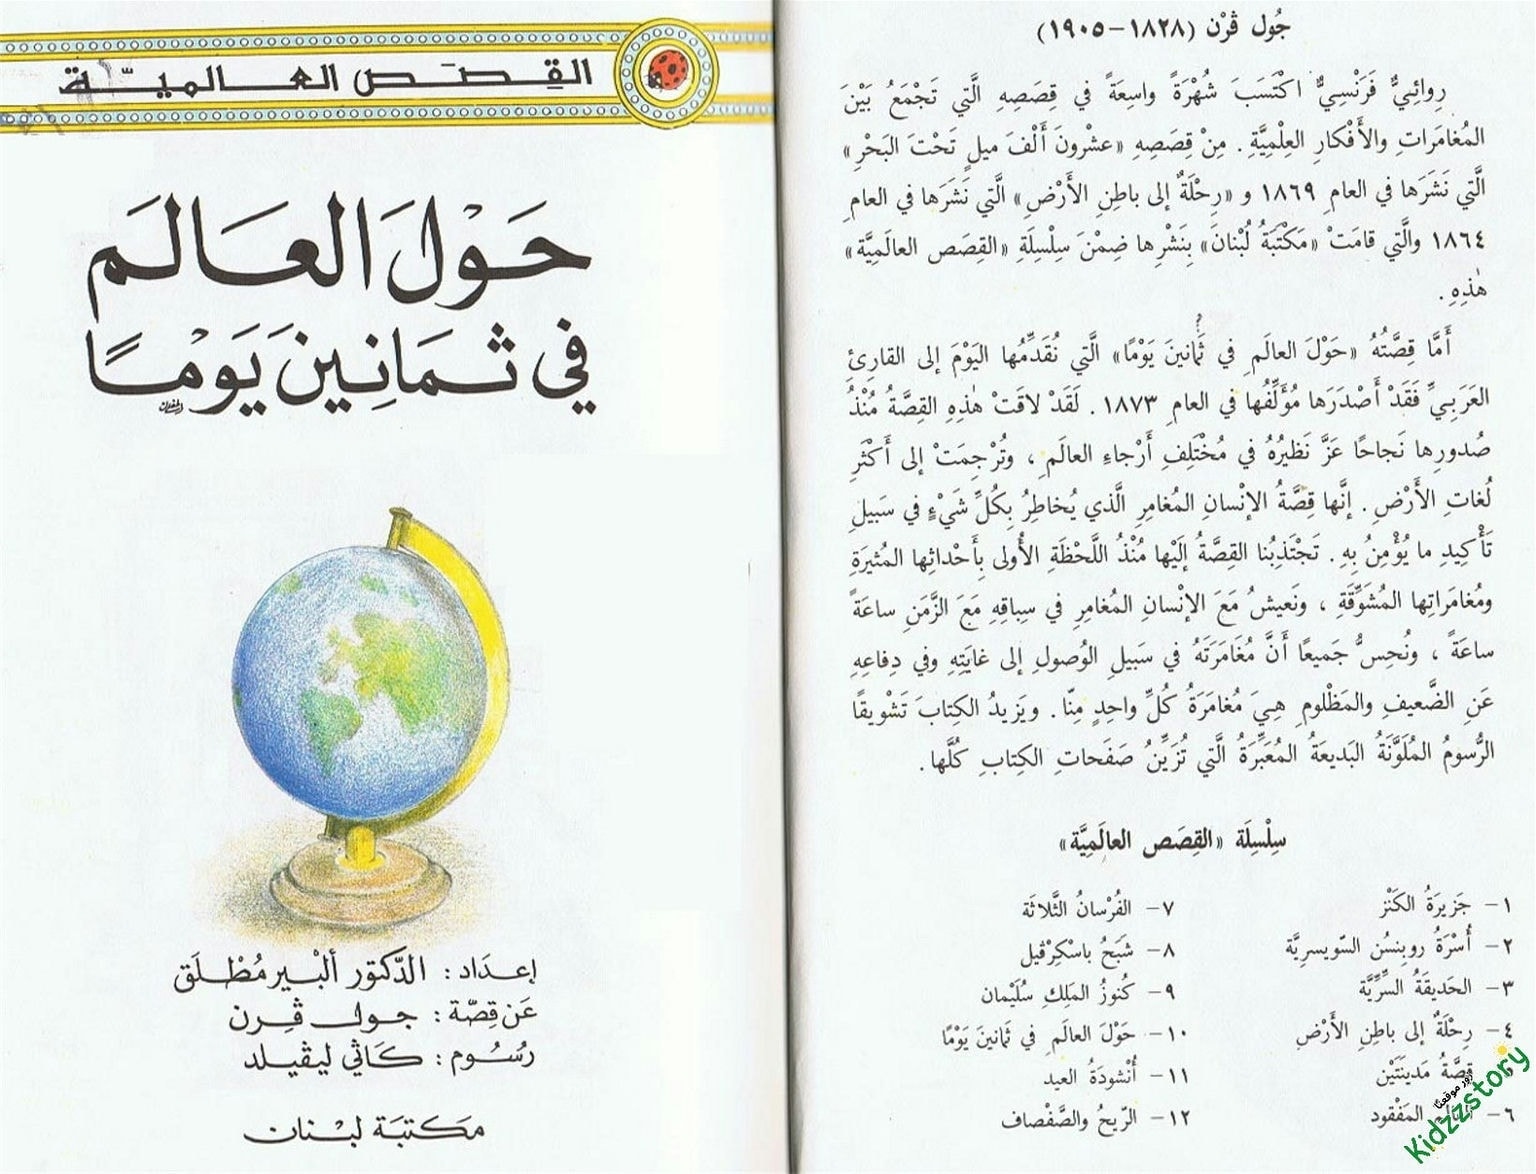 جُول ڤرْن (١٨٢٨-١٩٠٥)
رِوائِيٌّ فَرَنْسِيٌّ اكْتَسَبَ شُهْرَةً واسِعَةً في قِصَصِهِ الَّتي تَجْمَعُ بَيْنَ
المُغامَراتِ والأَفْكارِ العِلْمِيَّةِ. مِنْ قِصَصِهِ «عشْرونَ أَلْفَ ميلٍ تَحْتَ البَحْرِ»
الَّتي نَشَرَها في العامِ ١٨٦٩ و «رِحْلَةٌ إلى باطِنِ الأَرْضِ» الَّتي نَشَرَها في العامِ
١٨٦٤ والَّتي قامَتْ «مَكْتَبَةُ لُبْنانَ» بِنَشْرِها ضِمْنَ سِلْسِلَةِ «القِصَص العالَمِيَّة»
هٰذِهِ.
أَمَّا قِصَّتُهُ «حَوْلَ العالَمِ في ثَمانينَ يَوْمًا» الَّتي نُقَدِّمُها اليَوْمَ إلى القارِئِ
العَرَبِيِّ فَقَدْ أَصْدَرَها مُؤَلِّفُها في العامِ ١٨٧٣. لَقَدْ لاقَتْ هٰذِهِ القِصَّةُ مُنْذُ
صُدورِها نَجاحًا عَزَّ نَظيرُهُ في مُخْتَلِفِ أَرْجاءِ العالَمِ، وتُرْجِمَتْ إلى أَكْثَرِ
لُغاتِ الأَرْضِ. إنَّها قِصَّةُ الإنْسانِ المُغامِرِ الَّذي يُخاطِرُ بِكُلِّ شَيْءٍ في سَبيلِ
تَأْكيدِ ما يُؤْمِنُ بِهِ. تَجْتَذِبُنا القِصَّةُ إلَيْها مُنْذُ اللَّحْظَةِ الأُولى بِأَحْداثِها المُثيرَةِ
ومُغامَراتِها المُشَوِّقَةِ، ونَعيشُ مَعَ الإنْسانِ المُغامِرِ في سِباقِهِ مَعَ الزَّمَنِ ساعَةً
ساعَةً، ونُحِسُّ جَميعًا أَنَّ مُغامَرَتَهُ في سَبيلِ الوُصولِ إلى غايَتِهِ وفي دِفاعِهِ
عَنِ الضَّعيفِ والمَظْلومِ هِيَ مُغامَرَةُ كُلِّ واحِدٍ مِنّا. ويَزيدُ الكِتابَ تَشْويقًا
الرُّسومُ المُلَوَّنَةُ البَديعَةُ المُعَبِّرَةُ الَّتي تُزَيِّنُ صَفَحاتِ الكِتابِ كُلَّها.
سِلْسِلَة «القِصَص العالَمِيَّة»
١- جَزيرَةُ الكَنْز
٢- أُسْرَةُ روبِنْسُن السّويسرِيَّة
٣- الحَديقَةُ السِّرِّيَّة
٤- رِحْلَةٌ إلى باطِنِ الأَرْضِ
قِصَّةُ مَدينَتَيْن
٦- العالَم المَفْقود
٧- الفُرْسانُ الثَّلاثَة
٨- شَبَحُ باسْكِرْڤيل
٩- كُنوزُ المَلِكِ سُلَيْمان
١٠- حَوْلَ العالَمِ في ثَمانينَ يَوْمًا
١١- أُنْشودَةُ العيد
١٢- الرّيحُ والصَّفْصاف
زور موقعنا
Kidzzstory
القِصَص العالميّة
حَوْلَ العَالَم
في ثَمَانِينَ يَوْمًا
إعدَاد: الدّكتور ألبْير مُطْلَق
عَن قِصّة: جول ڤِرن
رسُوم: كاثي ليڤيلد
مكتبَة لبْنان